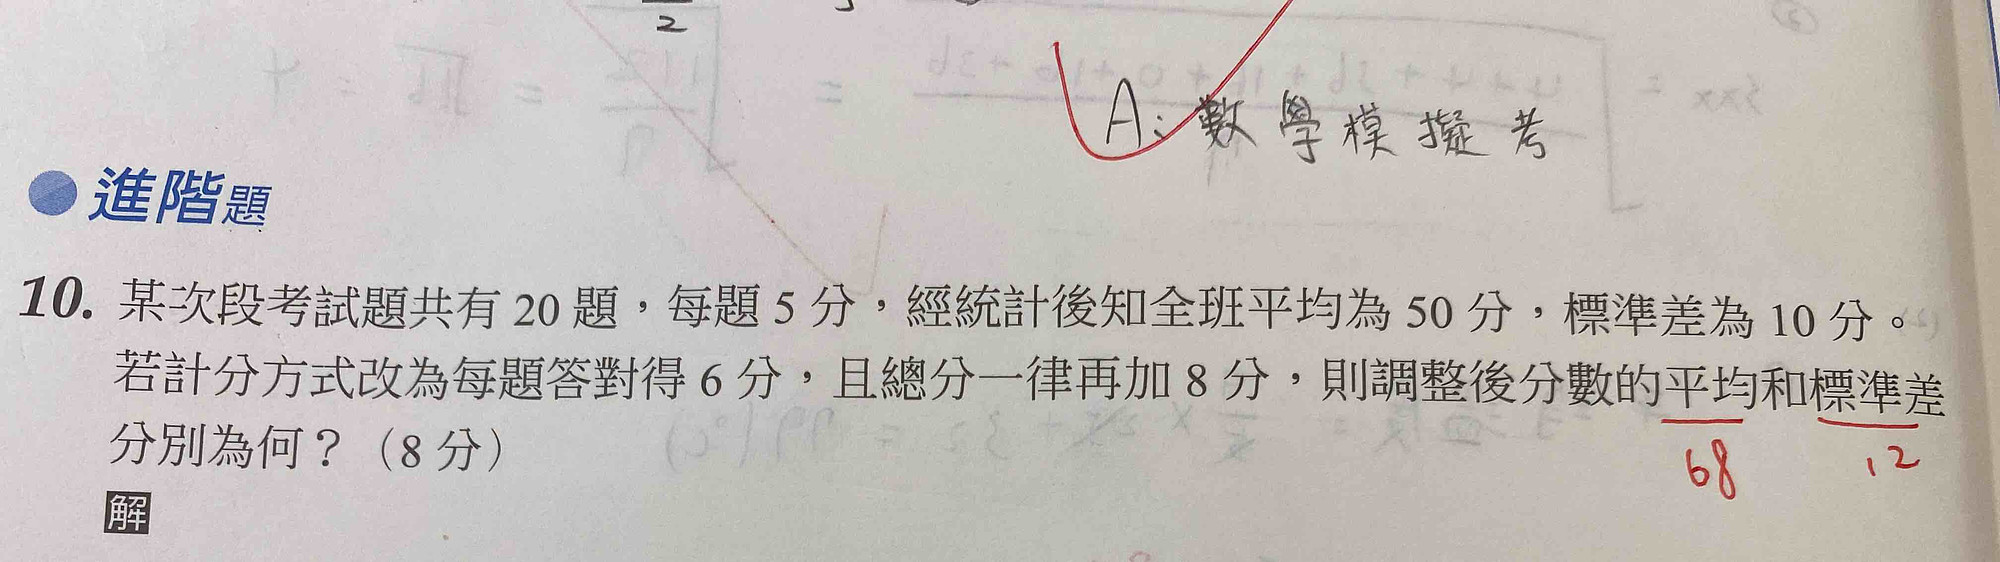 2
A: 數學模擬考
進階題
10. 某次段考試題共有 20 題，每題 5 分，經統計後知全班平均為 50 分，標準差為 10 分。
若計分方式改為每題答對得 6 分，且總分一律再加 8 分，則調整後分數的平均和標準差
分別為何？（8 分）
68 12
解